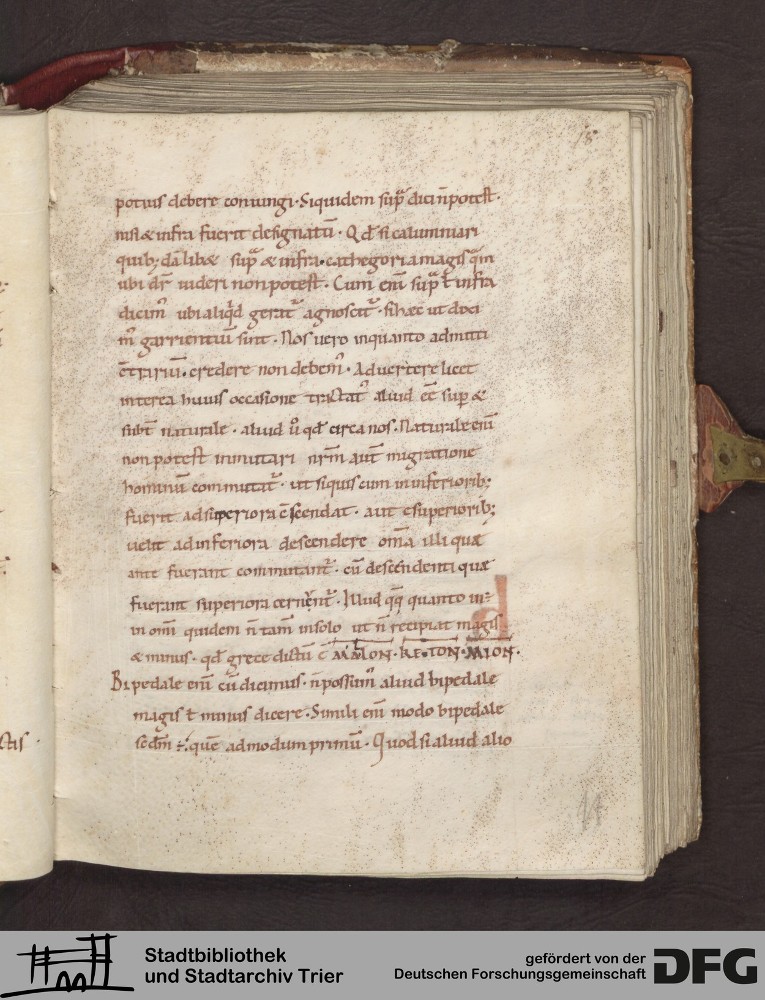 15
potius debere coniungi · Siquidem sup̄ dici n̄ potest ·
nisi & infra fuerit designatū · Qd̄ si calumniari
quib; dā libæ sup̄ & infra · cathegoria magis quā in
ubi dr̄ uideri non potest · Cum eni̅ sup̄ ł infra
dicim᾽ ubi aliqd̄ gerat᾽ agnoscit᾽ · si hæc ut doci
m᾽ garrientiū sint · Nos uero inquanto admitti
c̄trariū · credere non debem᾽ · Aduertere licet
interea huius occasione tractat᾽ aliud eē sup̄ &
subt᾽ naturale · aliud ů qd̄ circa nos · Naturale eni̅
non potest inmutari nr̄m aut̄ migratione
hominū commutat᾽ · ut siquis cum in inferiorib;
fuerit ad superiora c̄scendat · aut c̄ superiorib;
uelit ad inferiora descendere om̄a illi quæ
ante fuerant commutant᾽ · cū descendenti quæ
fuerint superiora cernent᾽ · Illud qq̄ quanto in÷
in om̄i quidem n̄ tam̄ in solo ut n̄ recipiat magis
& minus · qd̄ grece dictū ē MALON · KE · TON · MION ·
Bipedale eni̅ cū dicimus · n̄ possum᾽ aliud bipedale
magis ł minus dicere · Simili eni̅ modo bipedale
secd̄m ÷ · quē admodum primū · Quod si aliud alio
ctis ·
Stadtbibliothek
und Stadtarchiv Trier
gefördert von der
Deutschen Forschungsgemeinschaft
DFG